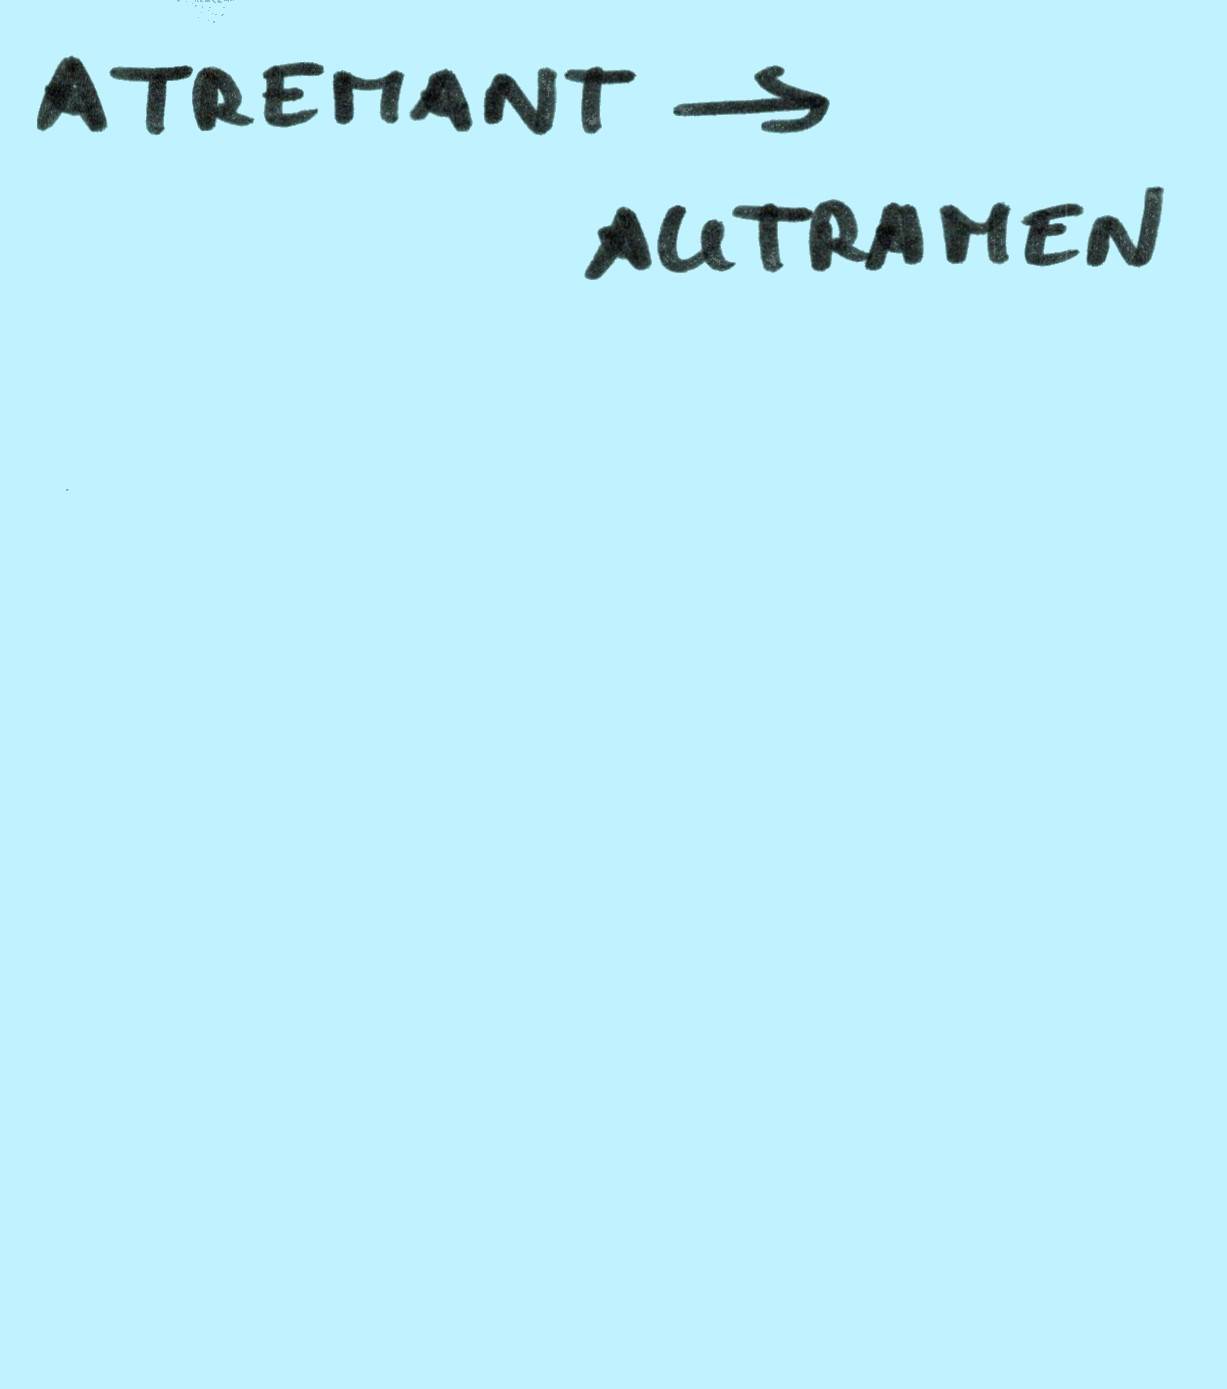 ATREMANT →
AUTRAMEN